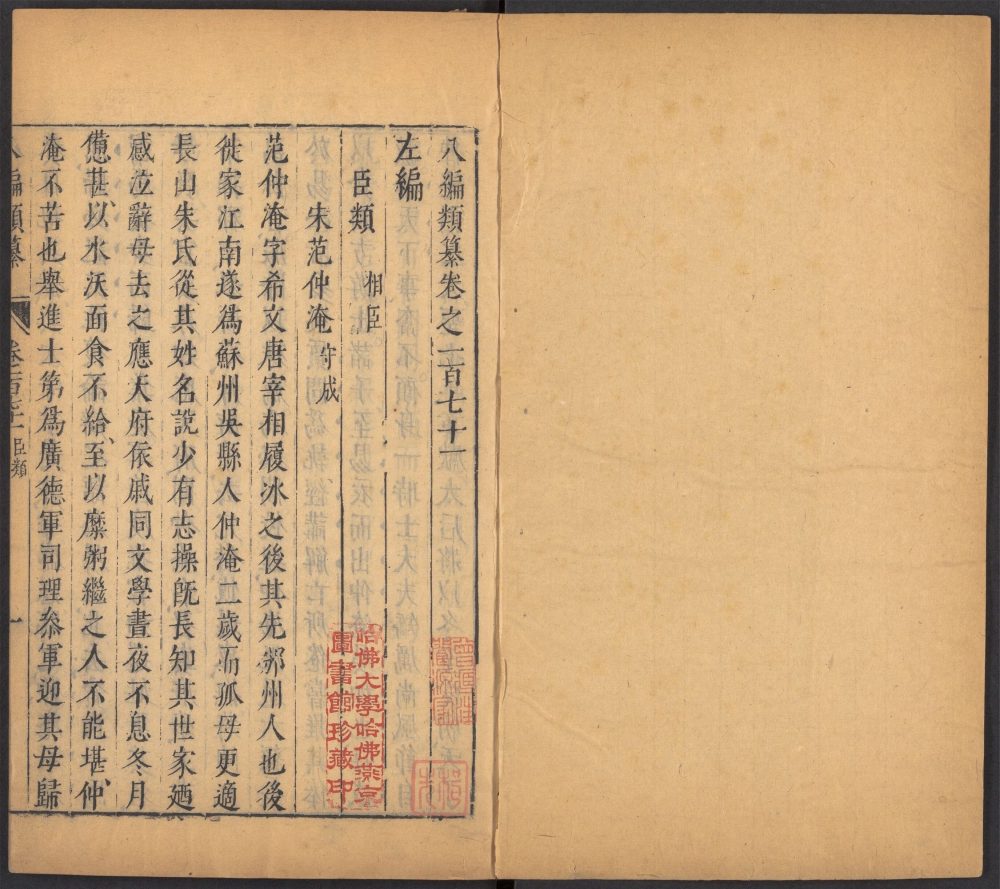 八編類纂卷之一百七十一
左編
臣類 相臣
宋范仲淹 守成
范仲淹字希文唐宰相履冰之後其先邠州人也後
徙家江南遂爲蘇州吳縣人仲淹二歲而孤母更適
長山朱氏從其姓名說少有志操旣長知其世家廼
感泣辭母去之應天府依戚同文學晝夜不息冬月
憊甚以水沃面食不給至以糜粥繼之人不能堪仲
淹不苦也舉進士第爲廣德軍司理叅軍迎其母歸
八編類纂 卷一百七十一 臣類 一
哈佛大學哈佛燕京
圖書館珍藏印